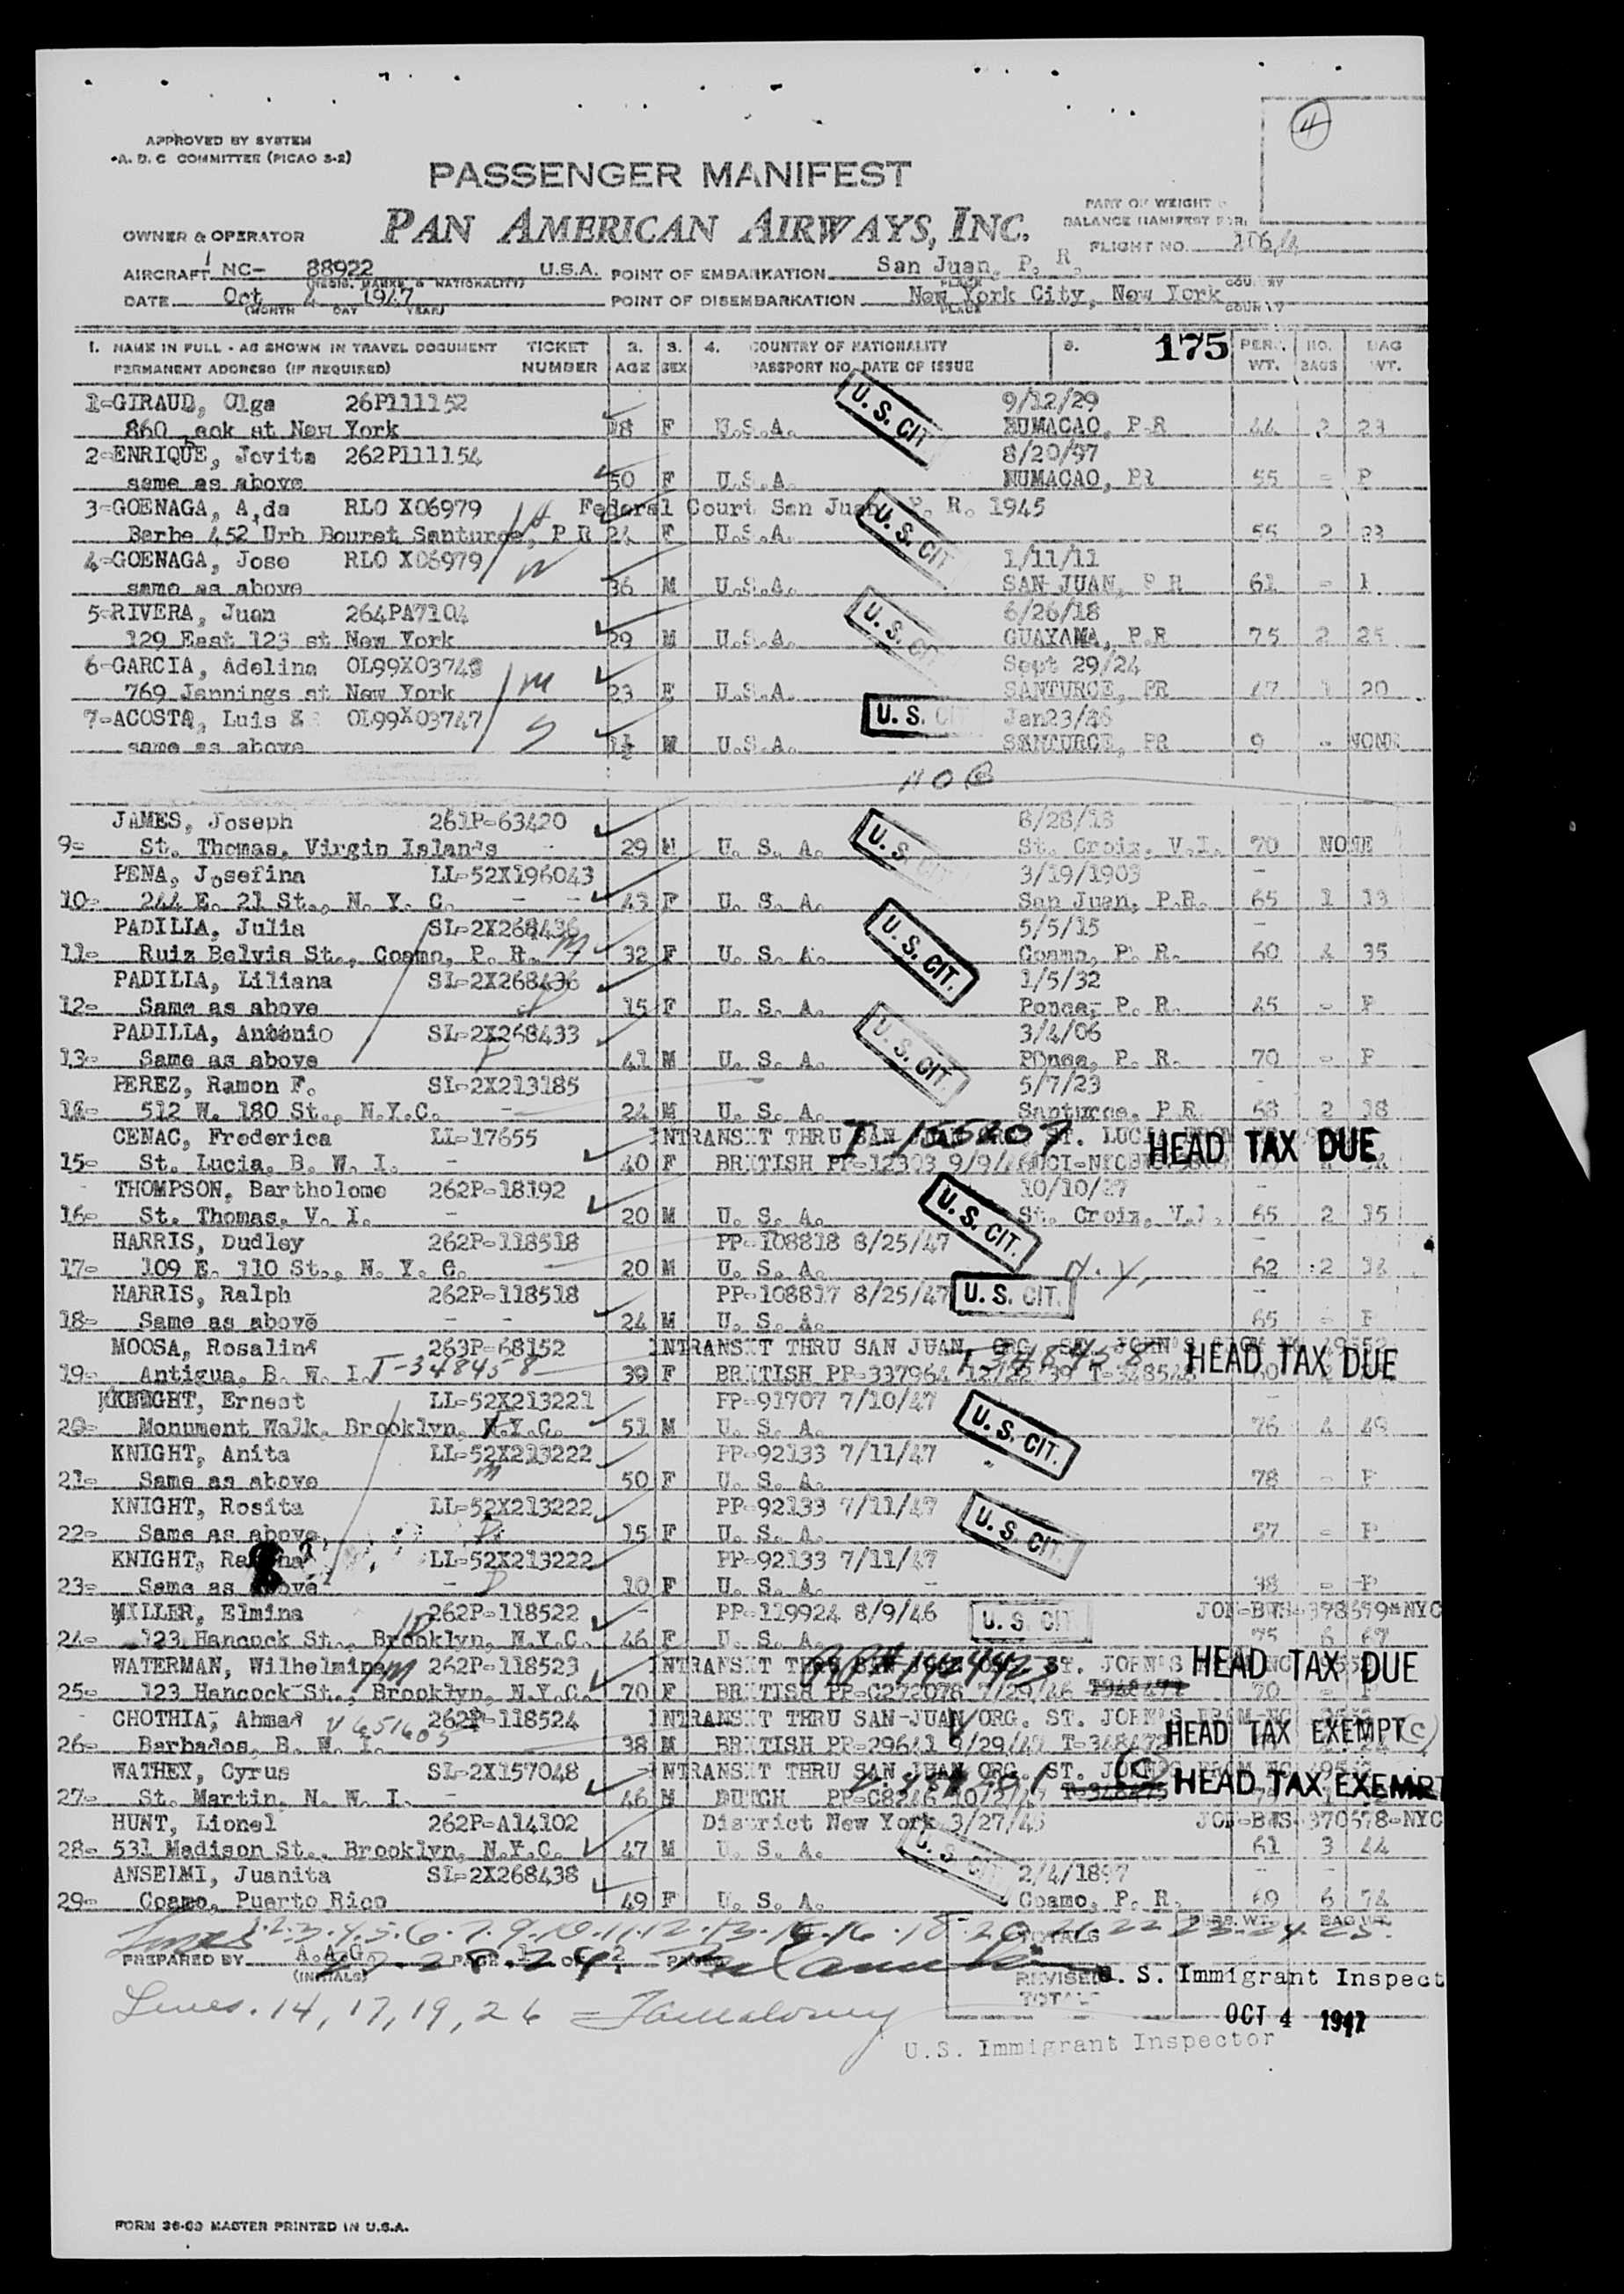 4
APPROVED BY SYSTEM
A. D. C COMMITTEE (PICAO S-2)
PASSENGER MANIFEST
PAN AMERICAN AIRWAYS, INC.
PART OF WEIGHT
BALANCE MANIFEST FOR
OWNER & OPERATOR
FLIGHT NO.
AIRCRAFT NC- 88922 U.S.A. POINT OF EMBARKATION San Juan, P. R.
(REGIS. MARKS & NATIONALITY) PLACE COUNTRY
DATE Oct 4 1947 POINT OF DISEMBARKATION New York City, New York
(MONTH DAY YEAR) PLACE COUNTRY
1. NAME IN FULL - AS SHOWN IN TRAVEL DOCUMENT TICKET 2. 3. 4. COUNTRY OF NATIONALITY 175 PERS. NO. BAG
PERMANENT ADDRESS (IF REQUIRED) NUMBER AGE SEX PASSPORT NO. DATE OF ISSUE WT. BAGS WT.
1-GIRAUD, Olga 26P111152 U. S. CIT 9/12/29
860 at New York 18 F U.S.A. HUMACAO, P.R 44 2 23
2-ENRIQUE, Jovita 262P111154 8/20/97
same as above 50 F U.S.A. HUMACAO, PR 55 - P
3-GOENAGA, Aida RLO X06979 Federal Court San Juan P. R. 1945
Barbe 452 Urb Bouret Santurce, P R 24 F U.S.A. U. S. CIT 55 2 23
4-GOENAGA, Jose RLO X06979 1/11/11
same as above 36 M U.S.A. SAN JUAN, P R 61 -
5-RIVERA, Juan 264PA7104 U. S. CIT 6/26/18
129 East 123 st New York 29 M U.S.A. GUAYAMA, P.R 75 2 25
6-GARCIA, Adelina OL99X03748 M Sept 29/24
769 Jennings st New York 23 F U.S.A. SANTURCE, PR 47 1 20
7-ACOSTA, Luis OL99X03747 S U. S. CIT Jan23/46
same as above 1½ M U.S.A. SANTURCE, PR 9 - NONE
NOB
JAMES, Joseph 261P-63420 8/28/18
9- St. Thomas, Virgin Islands 29 M U. S. A. U. S. CIT St. Croix, V.I. 70 NONE
PENA, Josefina LL-52X196043 3/19/1903
10- 244 E. 21 St., N. Y. C. 43 F U. S. A. San Juan, P.R. 65 1 13
PADILLA, Julia SL-2X268436 5/5/15
11- Ruiz Belvis St., Coamo, P. R. M 32 F U. S. A. U. S. CIT. Coamo, P. R. 60 4 35
PADILLA, Liliana SL-2X268436 1/5/32
12- Same as above 15 F U. S. A. Ponce, P. R. 45 - P
PADILLA, Antonio SL-2X268433 3/4/06
13- Same as above F 41 M U. S. A. U. S. CIT. Ponce, P. R. 70 - P
PEREZ, Ramon F. SL-2X213185 5/7/23
14- 512 W. 180 St., N.Y.C. 24 M U. S. A. Santurce, P.R. 68 2 38
CENAC, Frederica LL-17655 INTRANSIT THRU SAN JUAN ORG. ST. LUCIA HEAD TAX DUE
15- St. Lucia, B. W. I. 40 F BRITISH PP-12303
THOMPSON, Bartholome 262P-18192 10/10/27
16- St. Thomas, V. I. 20 M U. S. A. U. S. CIT. St. Croix, V.I. 65 2 35
HARRIS, Dudley 262P-118518 PP-108818 8/25/47
17- 109 E. 110 St., N. Y. C. 20 M U. S. A. N. Y. 62 2 34
HARRIS, Ralph 262P-118518 PP-108817 8/25/47 U. S. CIT.
18- Same as above 24 M U. S. A. 65 - P
MOOSA, Rosalind 263P-68152 INTRANSIT THRU SAN JUAN, ORG. ST. JOHN'S
19- Antigua, B. W. I. T-348458 39 F BRITISH PP-337964 12/22/39 HEAD TAX DUE
KNIGHT, Ernest LL-52X213221 PP-91707 7/10/47
20- Monument Walk, Brooklyn, N.Y.C. 51 M U. S. A. U. S. CIT. 76 4 49
KNIGHT, Anita LL-52X213222 PP-92133 7/11/47
21- Same as above M 50 F U. S. A. 78 - P
KNIGHT, Rosita LL-52X213222 PP-92133 7/11/47
22- Same as above 15 F U. S. A. U. S. CIT. 57 - P
KNIGHT, LL-52X213222 PP-92133 7/11/47
23- Same as above 10 F U. S. A. 38 - P
MILLER, Elmina 262P-118522 PP-119924 8/9/46 U. S. CIT
24- 123 Hancock St., Brooklyn, N.Y.C. 46 F U. S. A. 75 6 67
WATERMAN, Wilhelmina M 262P-118523 INTRANSIT THRU ST. JOHN'S HEAD TAX DUE
25- 123 Hancock St., Brooklyn, N.Y.C. 70 F BRITISH PP-C272078 7/29/46 70 - P
CHOTHIA, Ahmad 262P-118524 INTRANSIT THRU SAN-JUAN ORG. ST. JOHN'S
26- Barbados, B. W. I. 38 M BRITISH PP-29641 9/29/47 T-348472 HEAD TAX EXEMPT (C)
WATHEY, Cyrus SL-2X157048 INTRANSIT THRU SAN JUAN ORG. ST. JOHNS
27- St. Martin, N. W. I. 46 M DUTCH PP-C8246 10/2/47 T-348475 (C) HEAD TAX EXEMPT
HUNT, Lionel 262P-A14102 District New York 3/27/45
28- 531 Madison St., Brooklyn, N.Y.C. 47 M U. S. A. U. S. CIT 61 3 44
ANSELMI, Juanita SL-2X268438 2/4/1897
29- Coamo, Puerto Rico 49 F U. S. A. Coamo, P. R. 69 6 74
Lines 1.2.3.4.5.6.7.9.10.11.12.13.15.16.18.20.21.22.23.24.25.
TOTALS PERS. WT. BAG WT.
PREPARED BY A.A.G. PAGE 1 OF 2 PAGES
(INITIALS)
27.28.29
REVISED TOTALS
U. S. Immigrant Inspect
Lines. 14, 17, 19, 26
OCT 4 1947
U.S. Immigrant Inspector
FORM 36-03 MASTER PRINTED IN U.S.A.